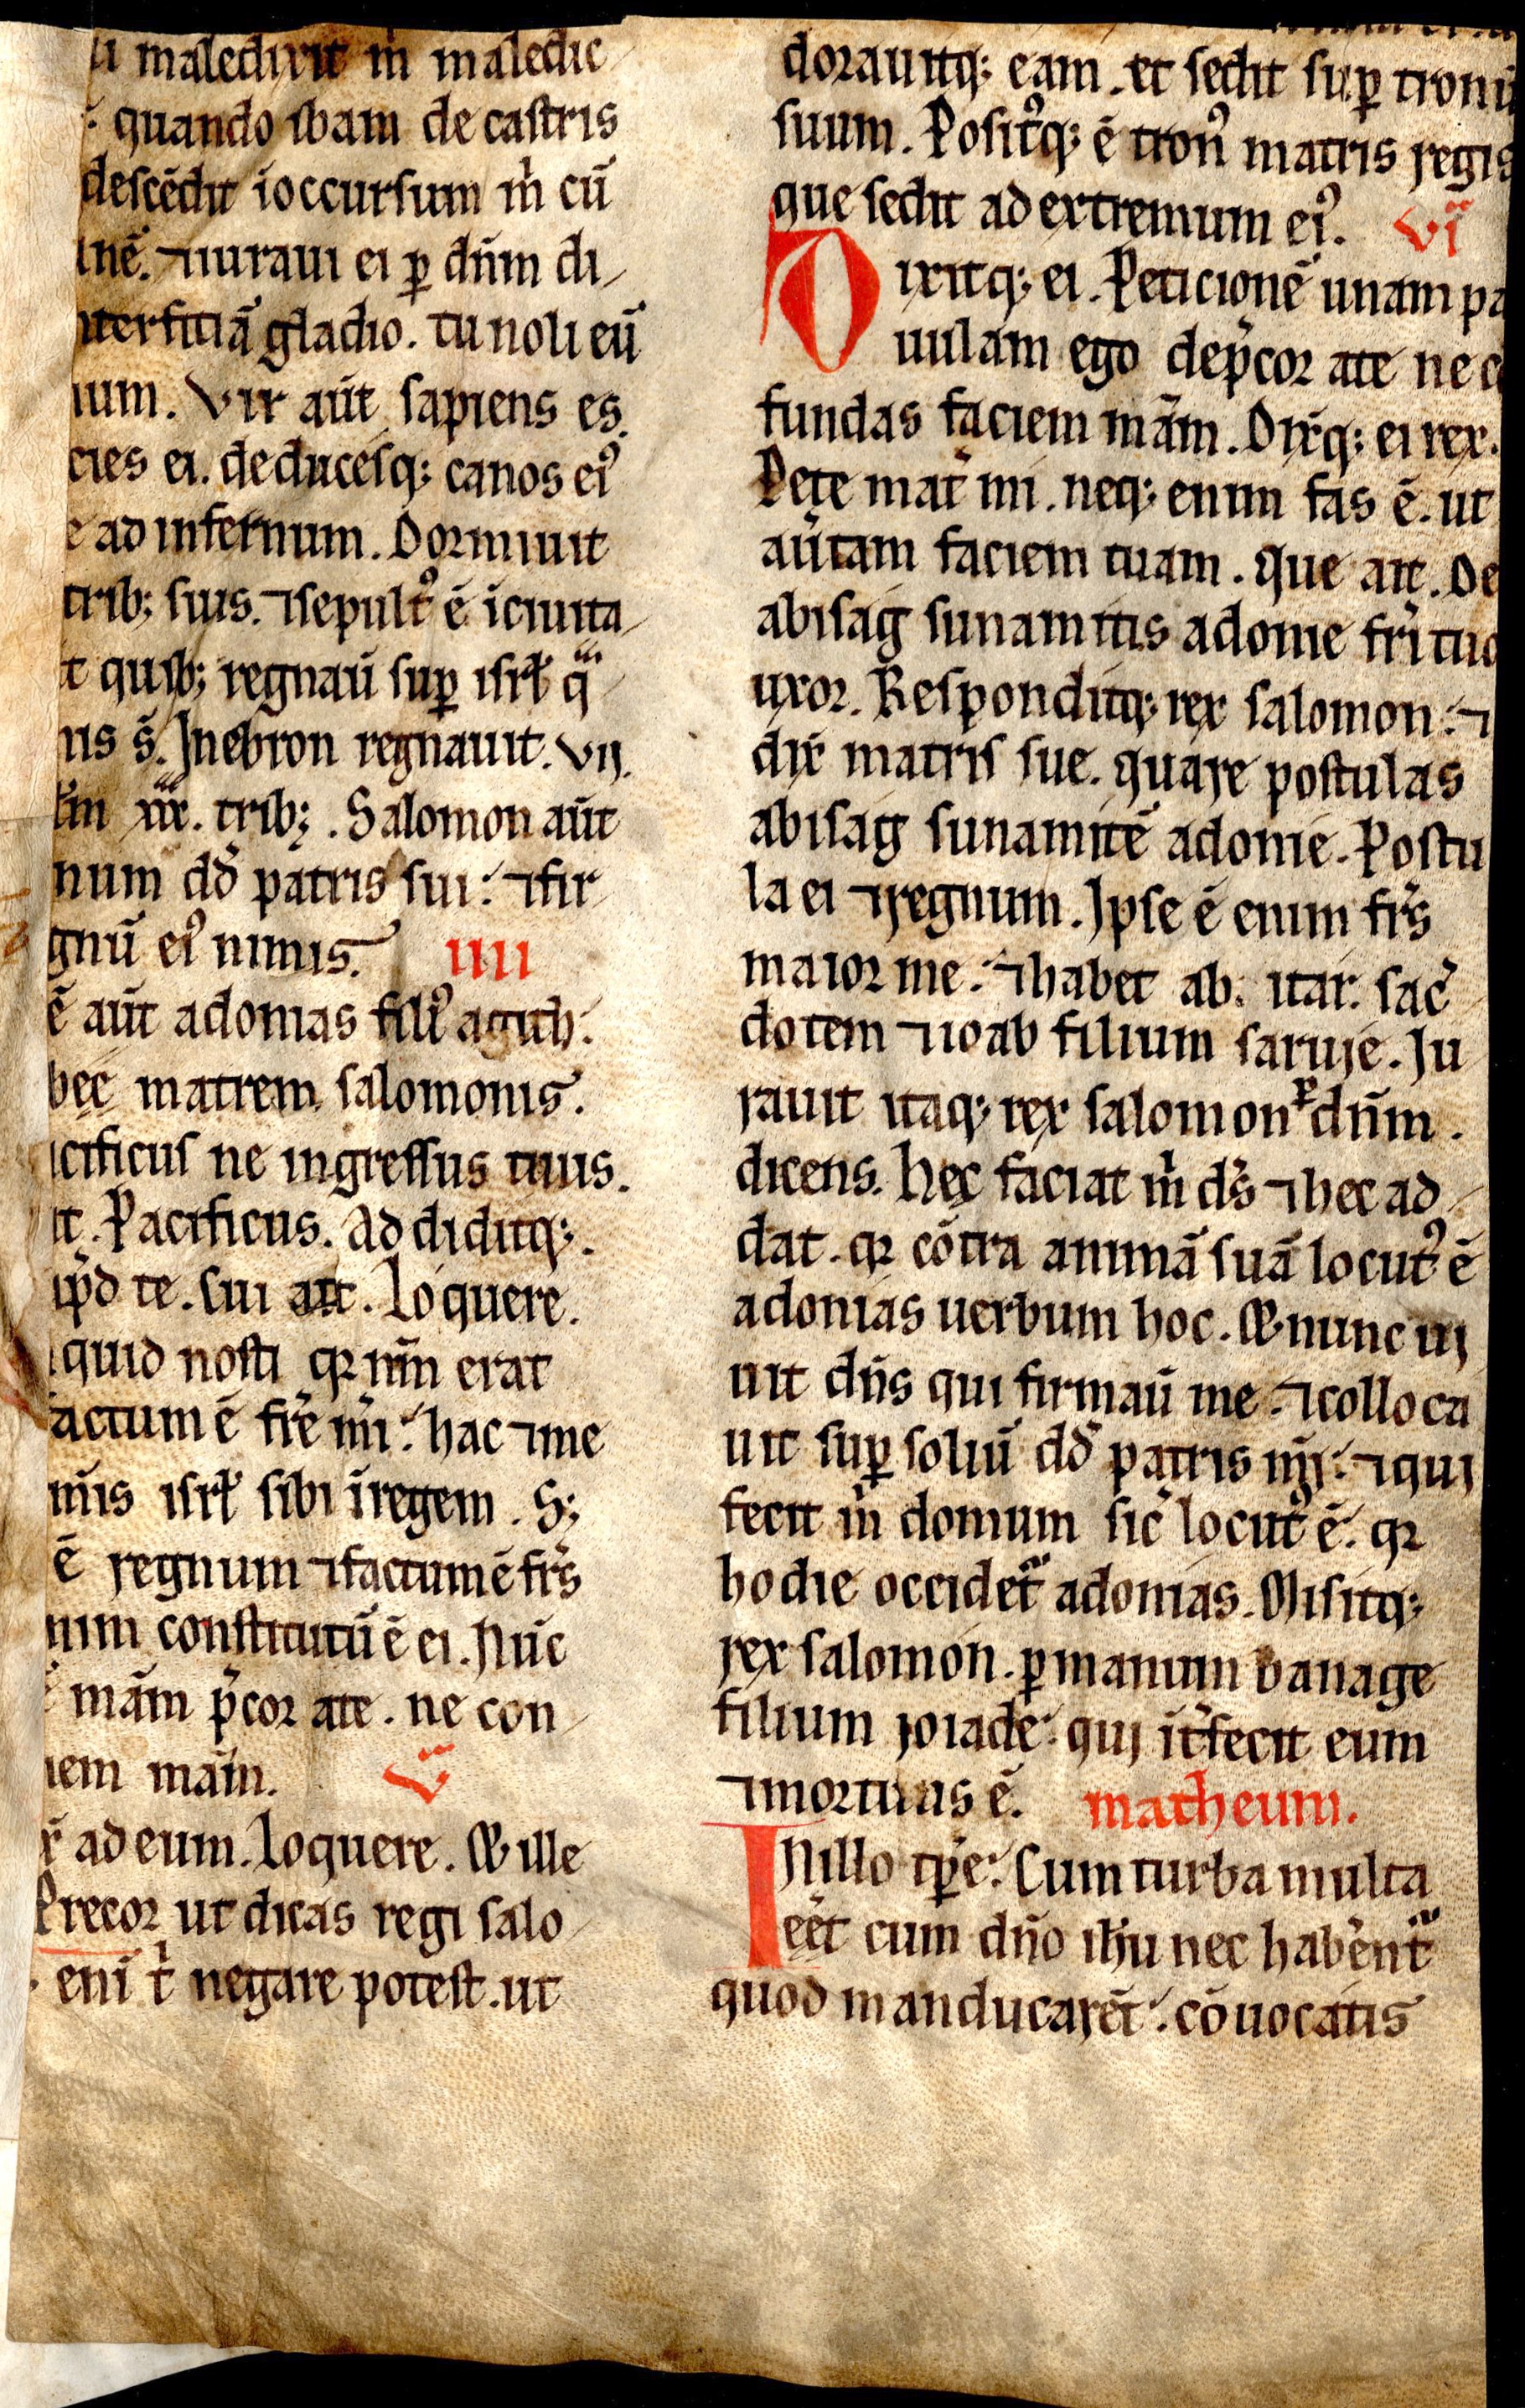 maledixit m̄ maledic
quando ibam de castris
descēdit ioccursum m̄ cū
inē. ⁊iuraui ei ꝑ dn̄m di
nterfitiā gladio. tu noli eū
ium. Vir aūt sapiens es.
cies ei. deducesq; canos eiꝰ
e ad infernum. Dormiuit
trib; suis. ⁊sepultꝰ ē iciuita
t quib; regnaū suꝑ isrł q̄
nis s̄. Jnebron regnauit. vij.
łm xxx. trib; . Salomon aūt
num dd̄ patris sui. ⁊fir
gnū eiꝰ nimis. iiii
ē aūt adonias filiꝰ agith.
bee matrem salomonis.
icificus ne ingressus tuus.
it. Pacificus. Addiditq;.
ip̄d te. Cui ait. Loquere.
quid nosti qꝛ mm̄ erat
factum ē fr̄e mi. hac ⁊me
nis isrł sibi īregem. S;
ē regnum ⁊factum ē fr̄s
nim constitutū ē ei. Nūc
mām p̄cor ate. ne con
iem mām. v
x̄ ad eum. Loquere. Et ille
Precor ut dicas regi salo
enī t̄ negare potest. ut
dorauitq; eam. et sedit suꝑ tronū
suum. Positꝰq; ē tronꝰ matris regis
que sedit ad extremum eiꝰ. vi
Dixitq; ei. Peticionē unam pa
uulam ego dep̄cor ate ne cō
fundas faciem mām. Dix̄q; ei rex.
Pete mat̄ mi. neq; enim fas ē. ut
aūtam faciem tuam. que ait. De
abisag sunamitis adonie fr̄i tuo
uxor. Responditq; rex salomon. ⁊
dix̄ matris sue. quare postulas
abisag sunamitē adonie. Postu
la ei ⁊regnum. Ipse ē enim fr̄s
maior me. ⁊habet ab. itar. sac̄
dotem ⁊ioab filium saruie. Ju
rauit itaq; rex salomon ꝑ dn̄m.
dicens. hec faciat m̄ ds̄ ⁊hec ad
dat. qꝛ cōtra animā suā locutꝰ ē
adonias uerbum hoc. Et nunc ui
uit dn̄s qui firmaū me. ⁊colloca
uit suꝑ soliū dd̄ patris mi. ⁊qui
fecit m̄ domum sic̄ locutꝰ ē. qꝛ
hodie occidet̄ adonias. Misitq;
rex salomon. ꝑmanum banage
filium joiade. qui īt̄fecit eum
⁊mortuus ē. matheum.
Jnillo tp̄e. Cum turba multa
eēt cum dn̄o ih̄u nec habēnt̄
quod manducarēt. cōuocatis